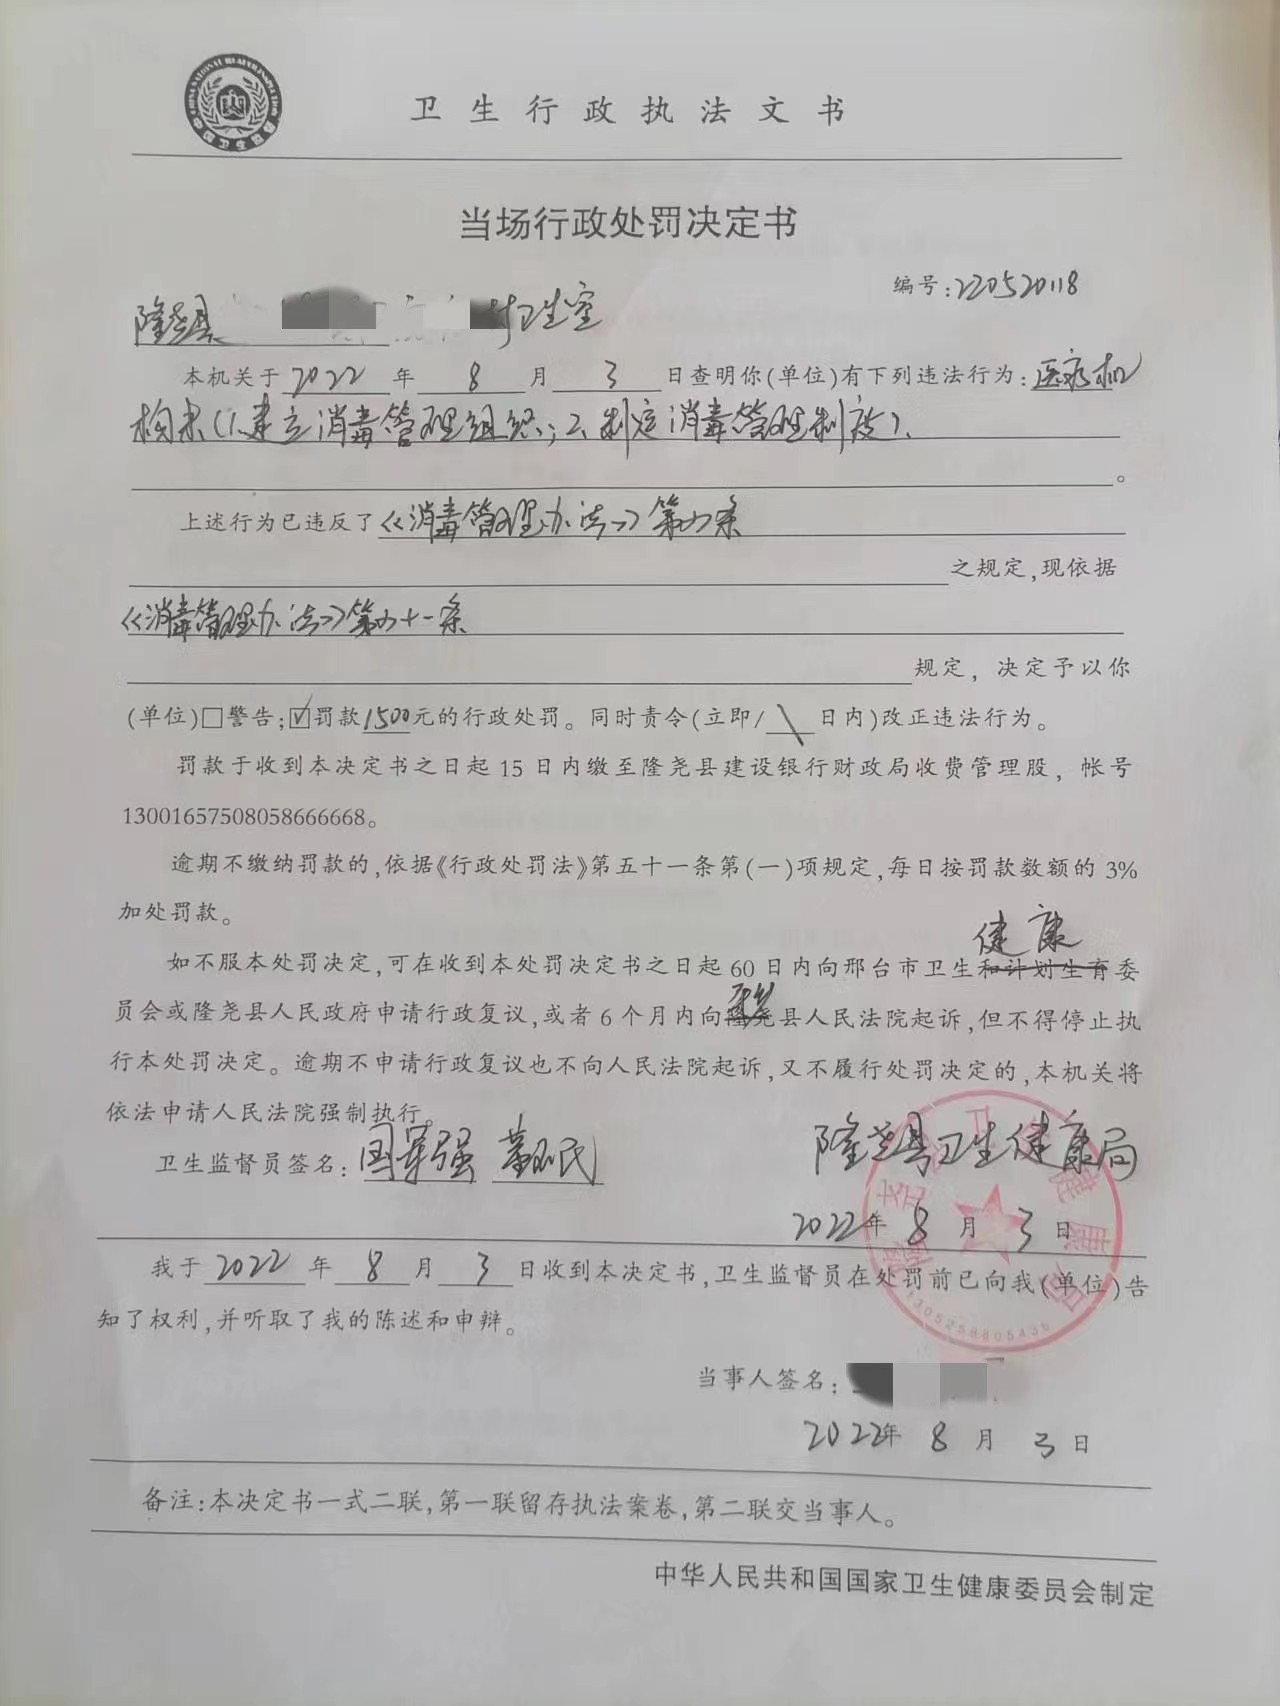 卫生行政执法文书
当场行政处罚决定书
编号:220520118
隆尧县 村卫生室
本机关于2022年8月3日查明你(单位)有下列违法行为:医疗机
构未(1、建立消毒管理组织;2、制定消毒管理制度)、
。
上述行为已违反了《消毒管理办法》第四条
之规定,现依据
《消毒管理办法》第四十一条
规定,决定予以你
(单位)□警告;☑罚款1500元的行政处罚。同时责令(立即/\日内)改正违法行为。
罚款于收到本决定书之日起15日内缴至隆尧县建设银行财政局收费管理股,帐号
13001657508058666668。
逾期不缴纳罚款的,依据《行政处罚法》第五十一条第(一)项规定,每日按罚款数额的3%
加处罚款。
健康
如不服本处罚决定,可在收到本处罚决定书之日起60日内向邢台市卫生和计划生育委
员会或隆尧县人民政府申请行政复议,或者6个月内向隆尧县人民法院起诉,但不得停止执
行本处罚决定。逾期不申请行政复议也不向人民法院起诉,又不履行处罚决定的,本机关将
依法申请人民法院强制执行。
卫生监督员签名:国军强 民
隆尧县卫生健康局
2022年8月3日
我于2022年8月3日收到本决定书,卫生监督员在处罚前已向我(单位)告
知了权利,并听取了我的陈述和申辩。
当事人签名:
2022年8月3日
备注:本决定书一式二联,第一联留存执法案卷,第二联交当事人。
中华人民共和国国家卫生健康委员会制定